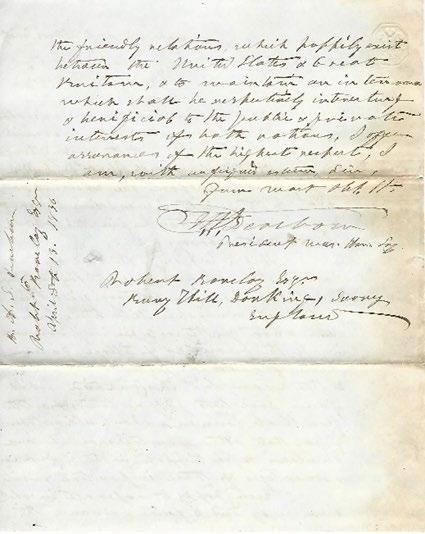 the friendly relations, which happily exist
between the United States & Great
Britain, & to maintain an intercourse
which shall be respectively interesting
& beneficial to the public & private
interests of both nations, I offer
assurances of the highest respect, I
am, with undisguised esteem Sir,
Your most Obt. St.
H A S Dearborn
President Mass. Hor. Soc.
Robert Barclay Esqr.
Bury Hill, Dorking, Surry
England
H. A. S. Dearborn
to
Robert Barclay Esqr
April 13. 1836